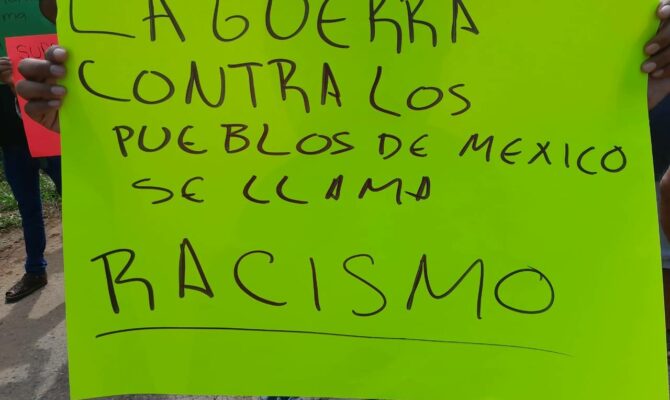 LA GUERRA
CONTRA LOS
PUEBLOS DE MEXICO
SE LLAMA
RACISMO